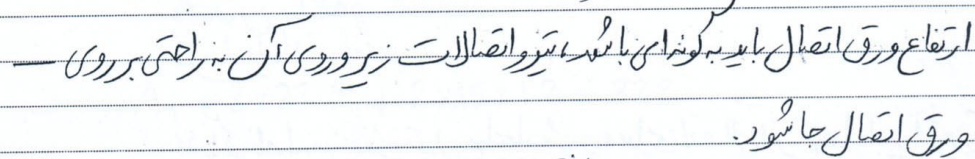 ارتفاع ورق اتصال باید به گونه‌ای باشد، تیر و اتصالات زیر و روی آن به راحتی بر روی
ورق اتصال جا شود.